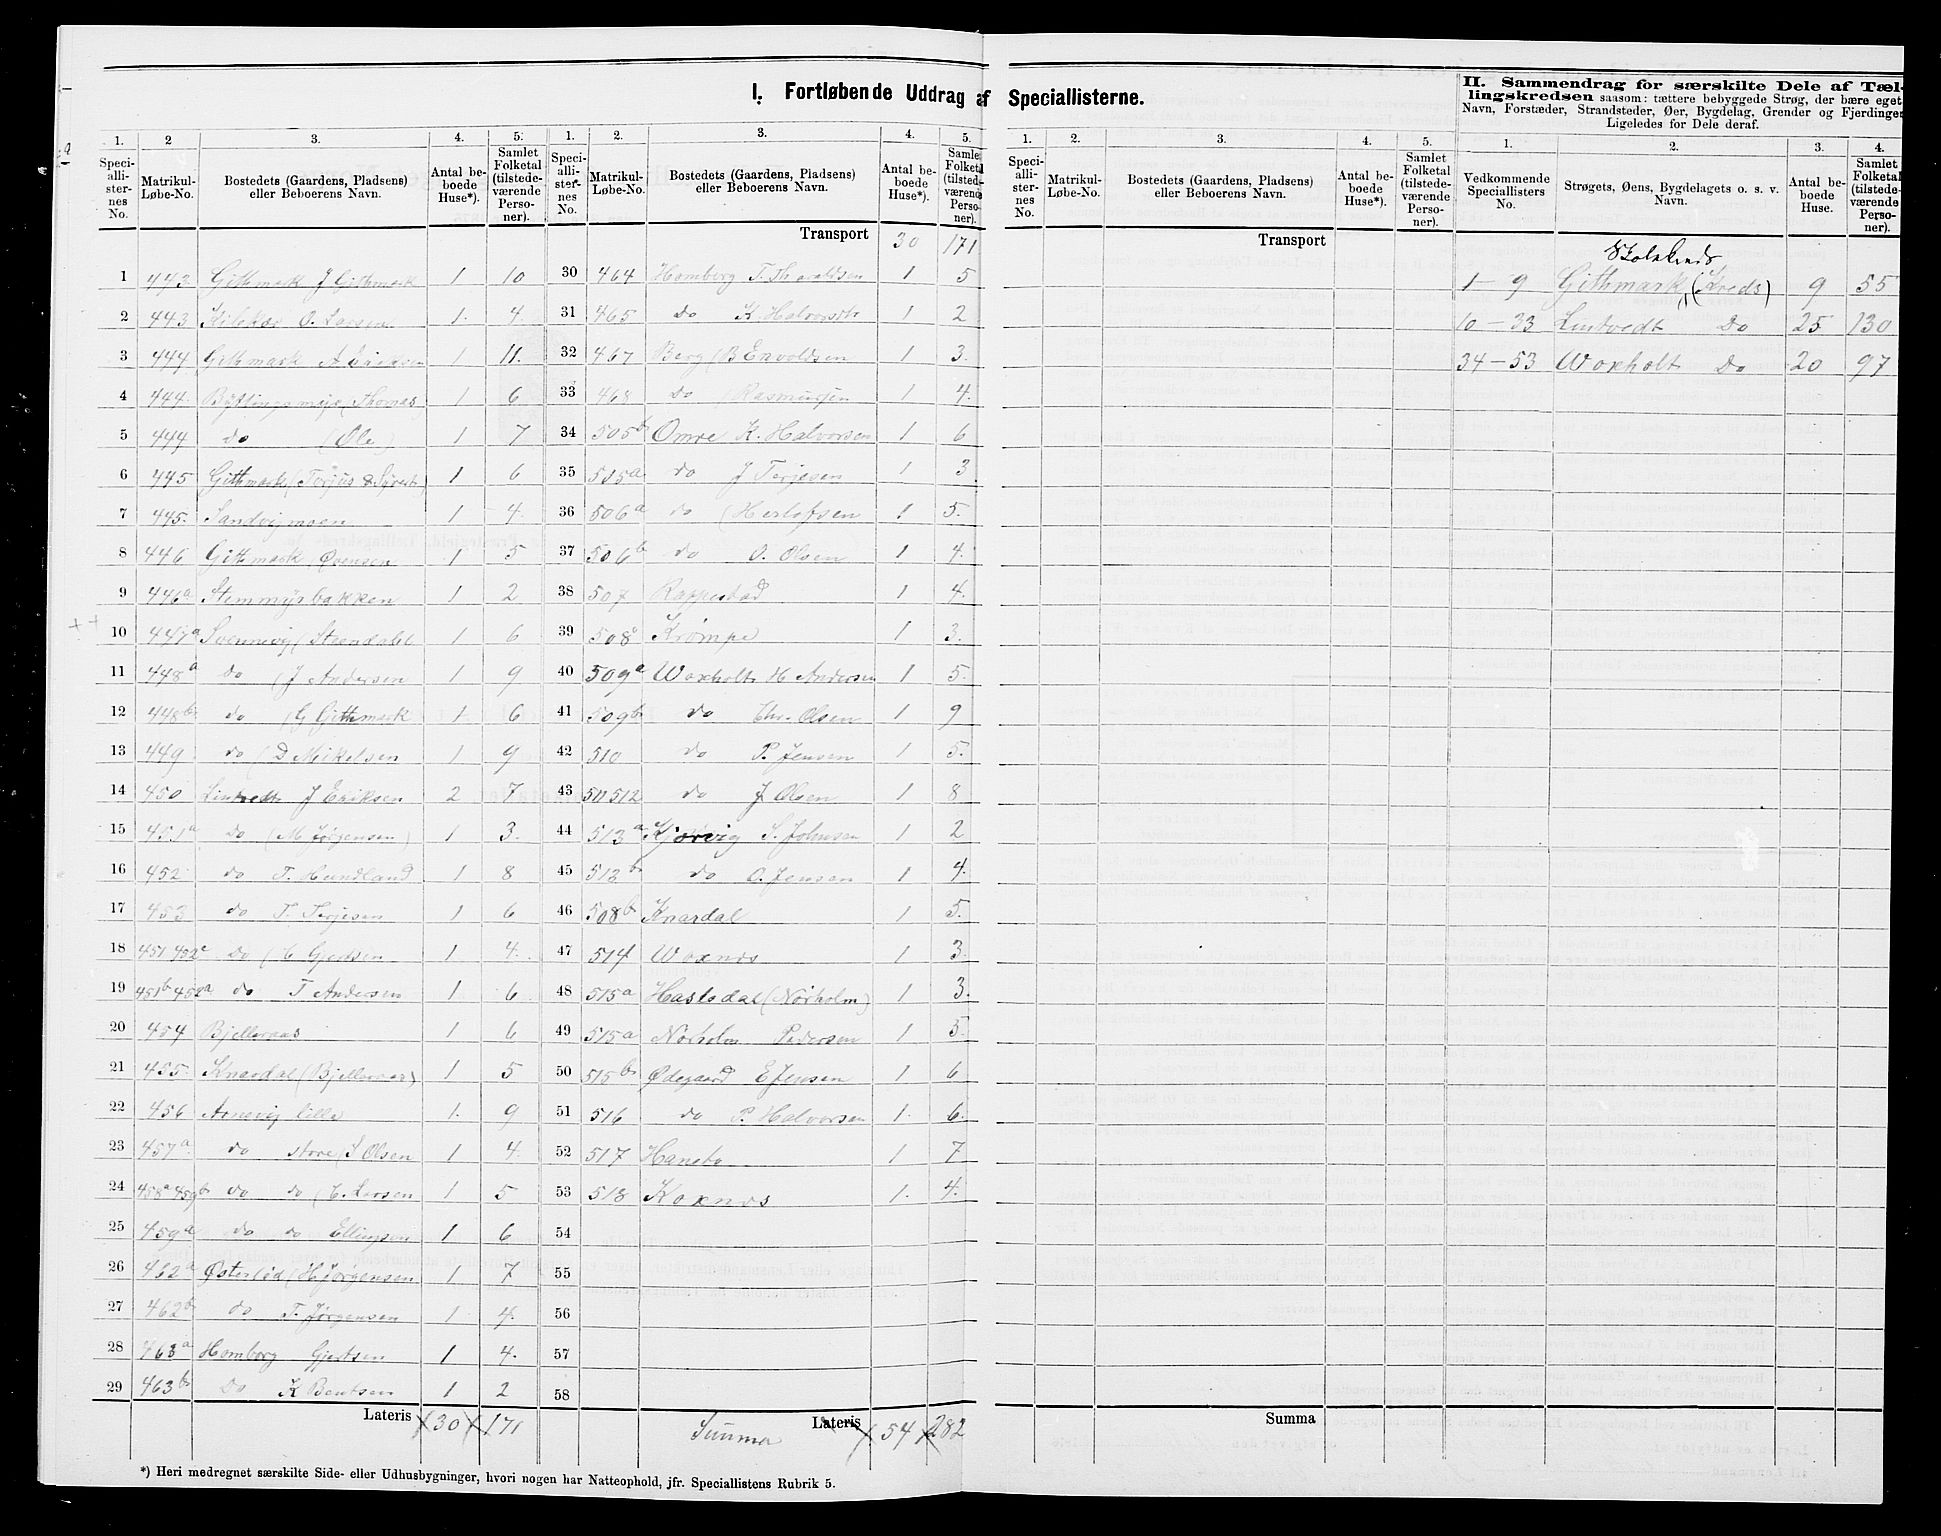 I. Fortløbende Uddrag af Speciallisterne.
II. Sammendrag for særskilte Dele af Tæl-
lingskredsen saasom: tættere bebyggede Strøg, der bære eget
Navn, Forstæder, Strandsteder, Øer, Bygdelag, Grender og Fjerdinger
Ligeledes for Dele deraf.
1. 2 3. 4. 5. 1. 2. 3. 4. 5. 1. 2. 3. 4. 5. 1. 2. 3. 4.
Speci-alli-ster-nes No. Matrikul-Løbe-No. Bostedets (Gaardens, Pladsens) eller Beboerens Navn. Antal be-boede Huse*). Samlet Folketal (tilstede-værende Perso-ner).
Speci-alli-ster-nes No. Matrikul-Løbe-No. Bostedets (Gaardens, Pladsens) eller Beboerens Navn. Antal be-boede Huse*). Samlet Folketal (tilstede-værende Perso-ner).
Speci-alli-ster-nes No. Matrikul-Løbe-No. Bostedets (Gaardens, Pladsens) eller Beboerens Navn. Antal be-boede Huse*). Samlet Folketal (tilstede-værende Perso-ner).
Vedkommende Speciallisters No. Strøgets, Øens, Bygdelagets o. s. v. Navn. Antal be-boede Huse. Samlet Folketal (tilstede-værende Perso-ner).
1 443 Githmark J Githmark 1 10
2 443 O. Larsen 1 4
3 444 Githmark A 1 11.
4 444 (Thomas) 1 6
5 444 do (Ole) 1 7
6 445 Githmark (Torjus & 1 6
7 445. Sandvigmoen 1 4.
8 446 Githmark 1 5
9 446a Stemmyrbakken 1 2
10 447a Svennevig (Steendahl 1 6
11 448a do (J Andersen 1 9
12 448b do (G Githmark 1 6
13 449 do (D Mikelsen 1 9
14 450 Lintvedt J Eriksen 2 7
15 451a do (M Jørgensen) 1 3.
16 452 do T. Hundland 1 8
17 453 do T. Terjesen 1 6
18 451 452c do 1 4.
19 451b 452a do T Andersen 1 6
20 454 Bjelleraas 1 6
21 455 Knardal (Bjelleraas) 1 5
22 456 Arnevig lille 1. 9
23 457a do store (S Olsen 1 4.
24 458a 459b do do (C. Larsen 1 5
25 459a do do Ellingsen 1 6
26 462a Østerlid (H Jørgensen 1 7
27 462b do T. Jørgensen 1 4.
28 463a Homborg Gjertsen 1 4.
29 463b do K Bentsen 1 2
Lateris 30 171
Transport 30 171
30 464 Homborg T. Tharaldsen 1 5
31 465 do K. 1 2
32 467 Berg (B Envoldsen 1 3.
33 468 do (Rasmusen 1 4.
34 505b Omre K. Halvorsen 1 6
35 505a do J Terjesen 1 3
36 506a do (Herlofsen 1 5.
37 506b do O. Olsen 1 4.
38 507 Rappestad 1 4.
39 508 Krømpe 1 3.
40 509a Woxholt H Andersen 1 5.
41 509b do Chr. Olsen 1 9
42 510 do P. Jensen 1 5.
43 511 512 do J Olsen 1 8
44 513a Kjørvig S. Johnsen 1 2
45 513b do O. Jensen 1 4.
46 508b Knardal 1 5.
47 514 Woxnes 1 3.
48 515a Hasledal (Nørholm) 1 3.
49 515a Nørholm Pedersen 1 5.
50 515b Ødegaard E Jensen 1 6
51 516 do P. Halvorsen 1. 6.
52 517 Haneto 1 7
53 518 Koxnes 1. 4.
54
55
56
57
58
Summa Lateris 54 282
Transport
Summa
Skolekreds
1 - 9 Githmark (Kreds) 9 55
10 - 33 Lintvedt Do 25 130
34 - 53 Woxholt Do 20 97
*) Heri medregnet særskilte Side- eller Udhusbygninger, hvori nogen har Natteophold, jfr. Speciallistens Rubrik 5.